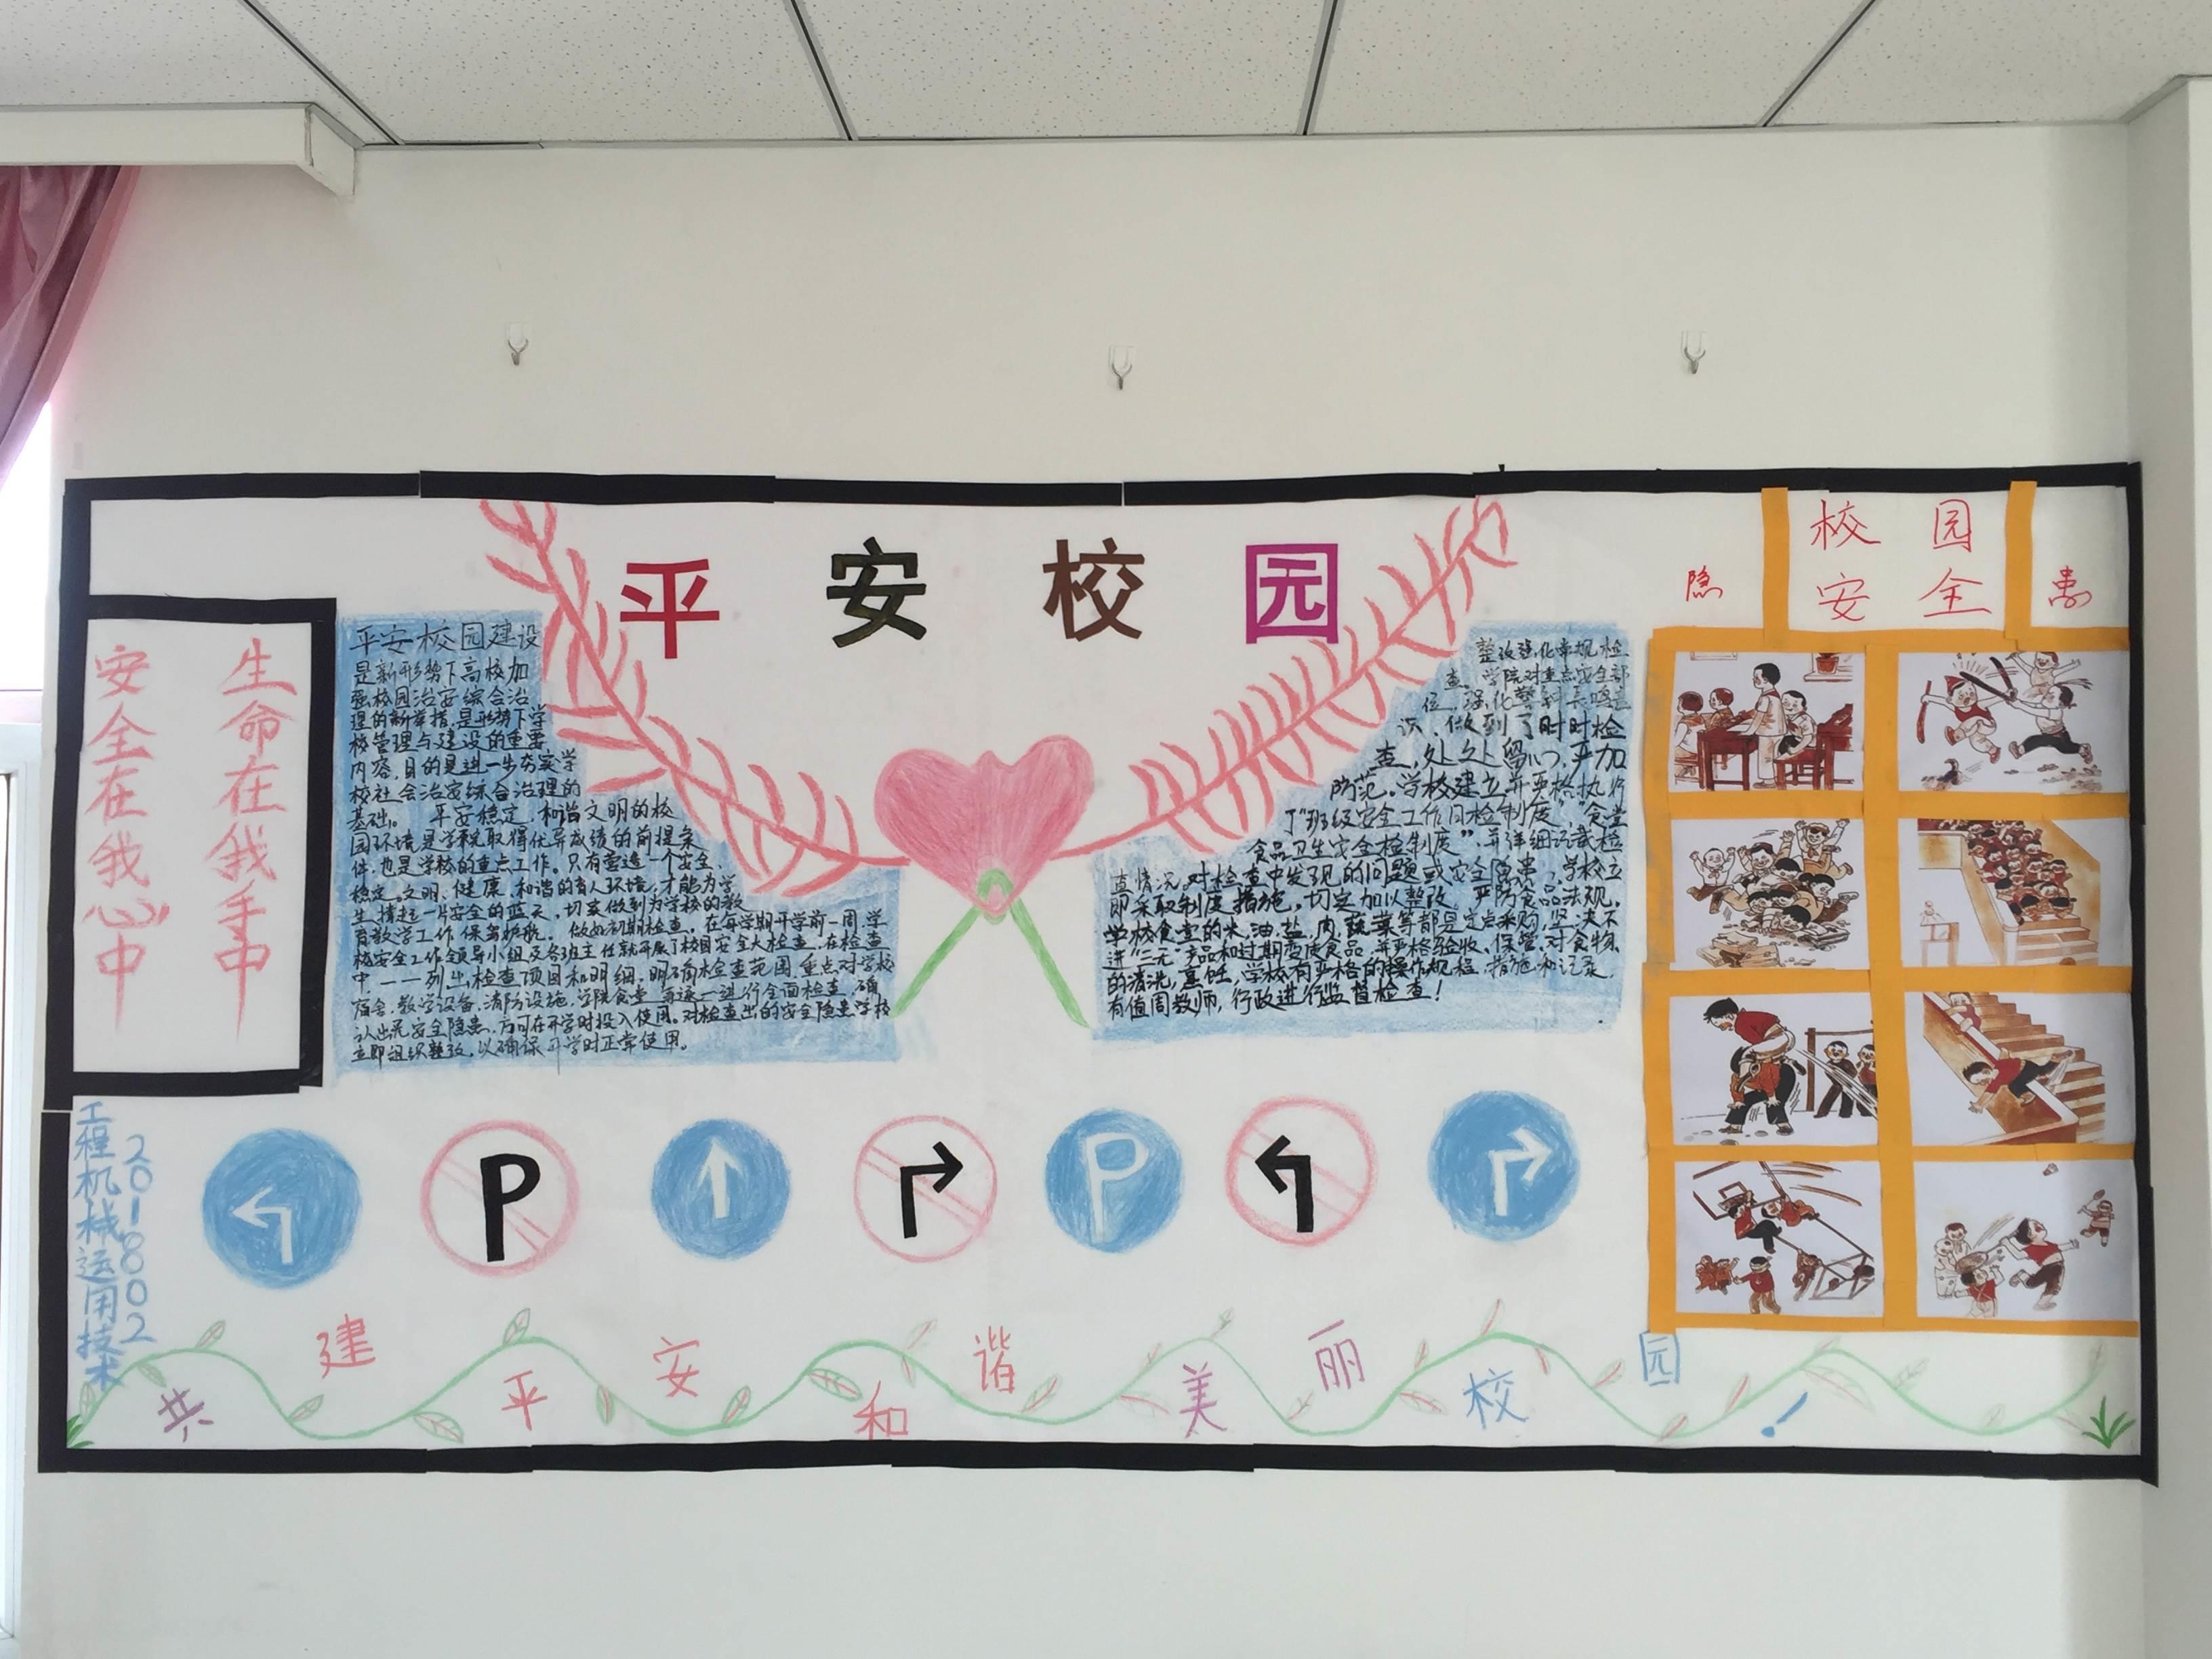 平安校园
校园
安全
隐患
生命在我手中
安全在我心中
平安校园建设
是新形势下高校加
强校园治安综合治
理的新举措,是形势下学
校管理与建设的重要
内容,目的是进一步夯实学
校社会治安综合治理的
基础。 平安稳定,和谐文明的校
园环境是学院取得优异成绩的前提条
件,也是学校的重点工作。只有营造一个安全、
稳定、文明、健康、和谐的育人环境,才能为学
生撑起一片安全的蓝天,切实做到为学校的教
育教学工作保驾护航。做好初期检查。在每学期开学前一周,学
校安全工作领导小组及各班主任就开展了校园安全大检查,在检查
中,一一列出检查项目和明细,明确检查范围,重点对学校
宿舍,教学设备,消防设施,学院食堂 等逐一进行全面检查,确
认出无安全隐患,方可在开学时投入使用。对检查出的安全隐患学校
立即组织整改,以确保开学时正常使用。
整改强化常规检
查,学院对重点安全部
位,强化警钟长鸣意
识,做到了时时检
查,处处留心,严加
防范。学校建立并严格执行
了“班级安全工作日检制度”,“食堂
食品卫生安全检制度”,并详细记载检
查情况,对检查中发现的问题或安全隐患,学校立
即采取制度措施,切实加以整改,严防食品法规。
学校食堂的米,油,盐,肉,蔬菜等都是定点采购,坚决不
进“三无”产品和过期变质食品,并严格验收、保管,对食物
的清洗,烹饪,学校有严格的操作规程,措施和记录,
有值周教师,行政进行监督检查!
P
P
工程机械运用技术
201802
共建平安和谐美丽校园!